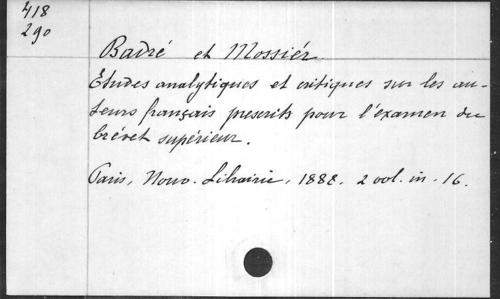 418
290
Badré et Mossiér
Etudes analytiques et critiques sur les au-
teurs français prescrits pour l'examen du
brévet supérieur.
Paris, Nouv. Librairie, 1888. 2 vol. in-16.